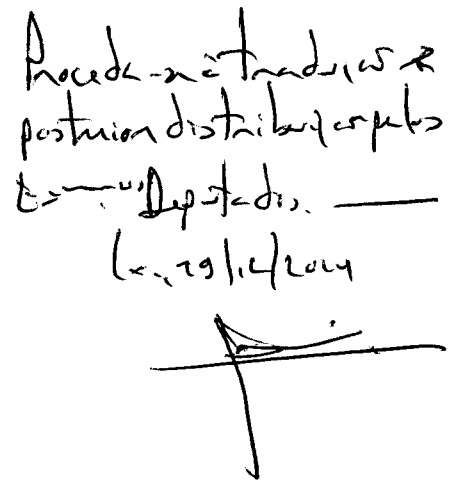 Proceda-se à tradução e
posterior distribuição pelos
Deputados.
Lx., 19/12/2024